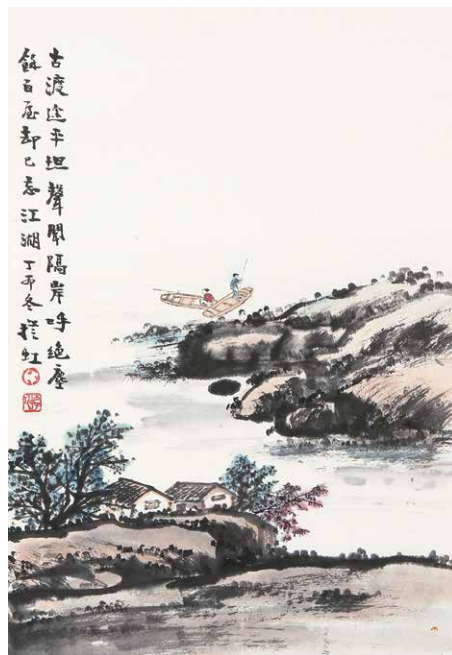 古渡途平坦聲聞隔岸呼絕塵
餘百却已忘江湖丁卯冬虹